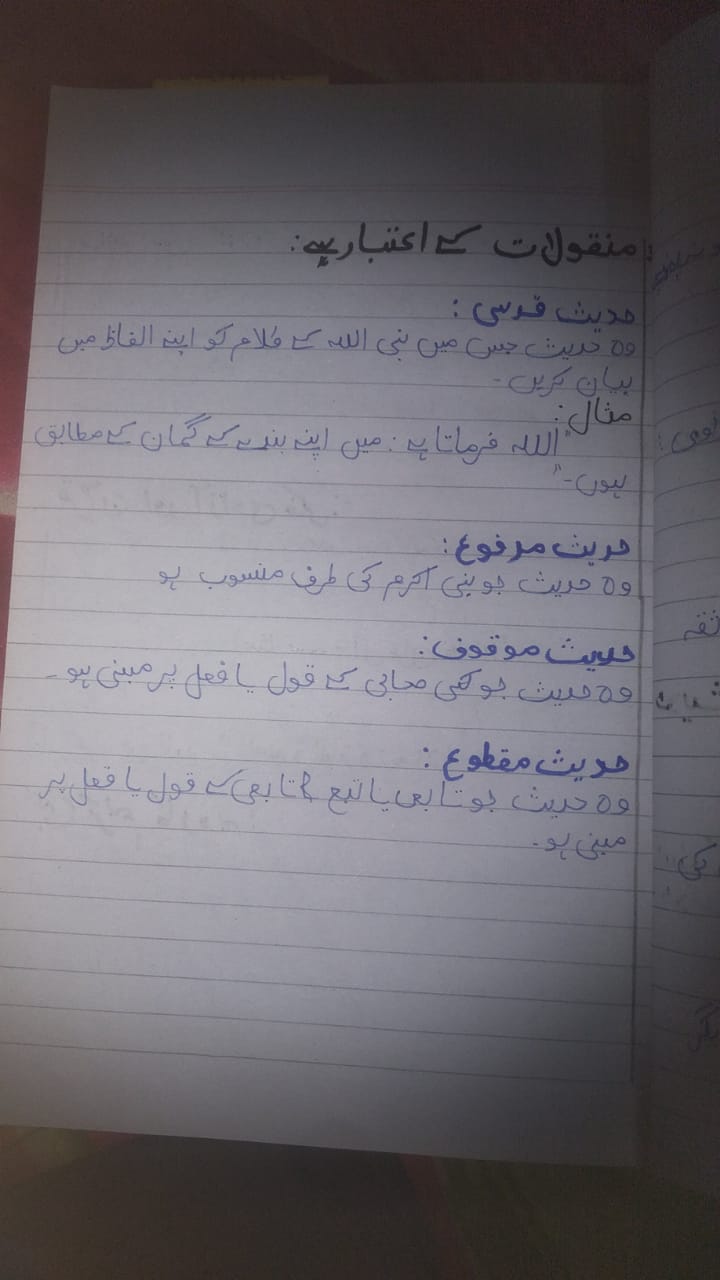 منقولات کے اعتبار سے:
حدیث قدسی:
وہ حدیث جس میں نبی اللہ کے کلام کو اپنے الفاظ میں
بیان کریں۔
مثال:
"اللہ فرماتا ہے: میں اپنے بندے کے گمان کے مطابق
ہوں۔"
حدیث مرفوع:
وہ حدیث جو نبی اکرم کی طرف منسوب ہو
حدیث موقوف:
وہ حدیث جو کسی صحابی کے قول یا فعل پر مبنی ہو۔
حدیث مقطوع:
وہ حدیث جو تابعی یا تبع تابعی کے قول یا فعل پر
مبنی ہو۔
ثقہ
کی: